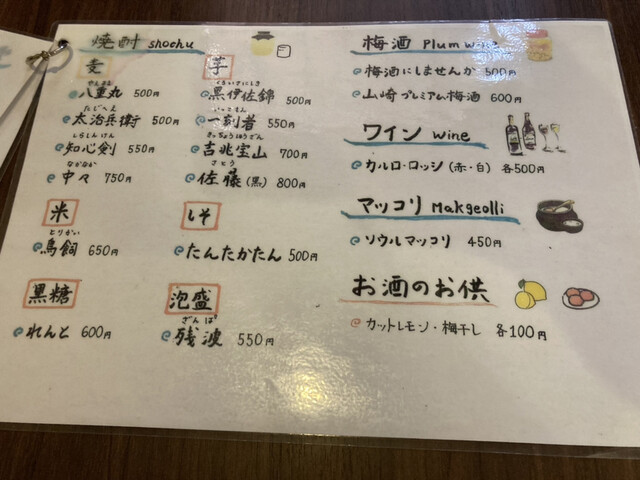 焼酎 shochu
麦
やえまる
八重丸 500円
たじへえ
太治兵衛 500円
しらしんけん
知心剣 550円
なかなか
中々 750円
芋
くろいさにしき
黒伊佐錦 500円
いっこもん
一刻者 550円
きっちょうほうざん
吉兆宝山 700円
さとう
佐藤(黒) 800円
米
とりかい
鳥飼 650円
しそ
たんたかたん 500円
黒糖
れんと 600円
泡盛
ざんぱ
残波 550円
梅酒 Plum wine
梅酒にしませんか 500円
山崎プレミアム梅酒 600円
ワイン wine
カルロ・ロッシ(赤・白) 各500円
マッコリ Makgeolli
ソウルマッコリ 450円
お酒のお供
カットレモン・梅干し 各100円